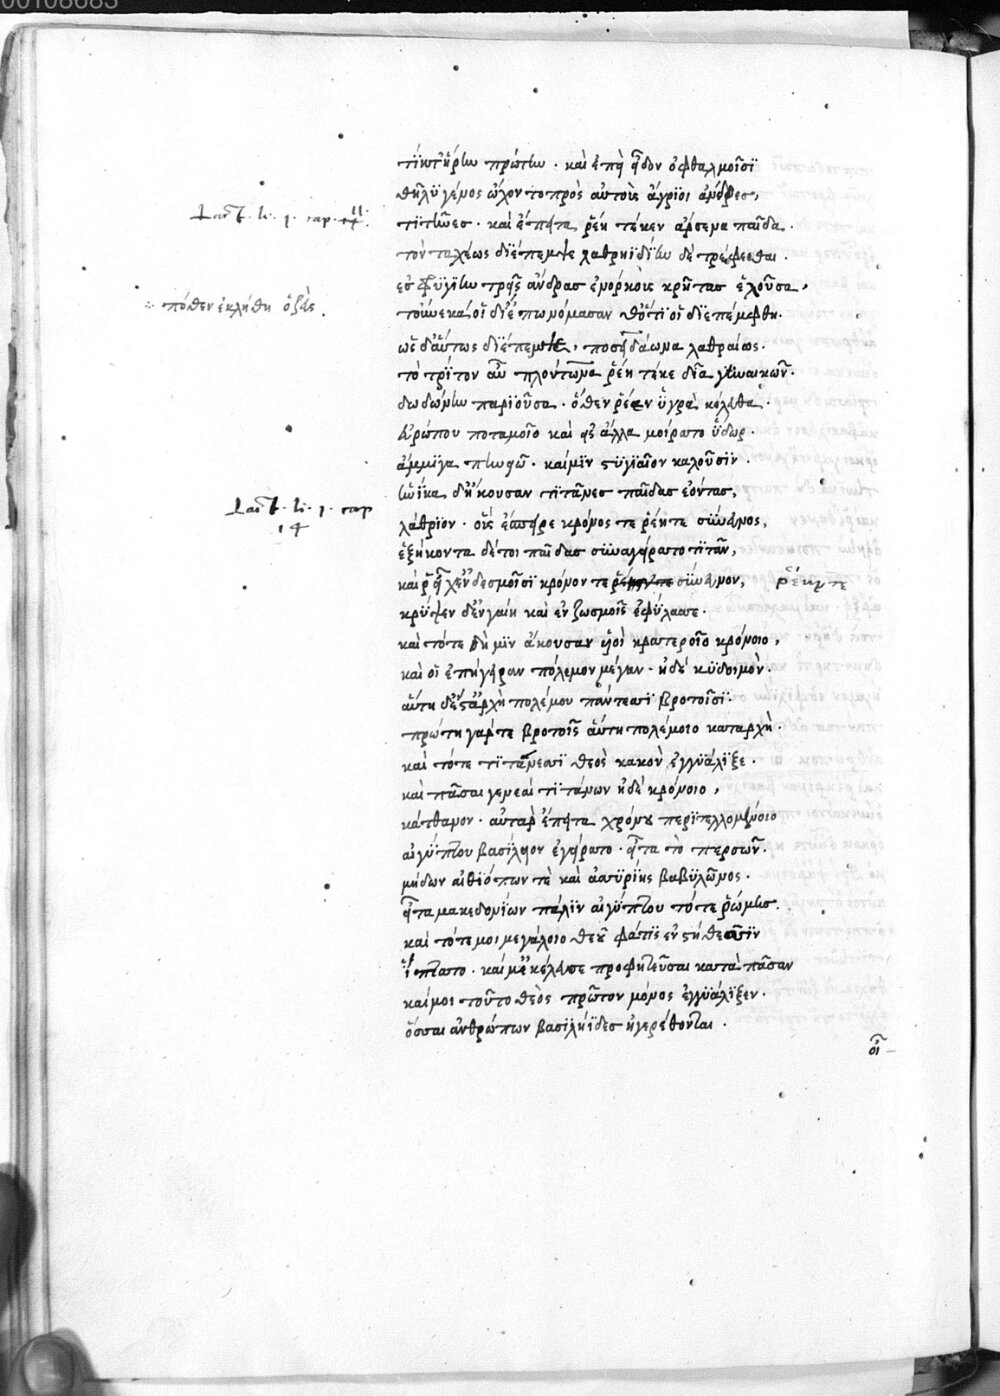 00108683
τὴν Ἥρην πρώτην · καὶ ἐπεὶ ἶδον ὀφθαλμοῖσϊ
θῆλϋ γένος ὤχοντο πρὸς αὐτοὺς ἄγριοι ἄνδρες,
Lact. li. 1. cap. 11.
τϊτῆνες · καὶ ἔπειτα ῥέη τέκεν ἄρσενα παῖδα ·
τὸν ταχέως διέπεμψε λαθρηϊδίην δὲ τρέφεσθαι ·
ἐς φρϋγίην τρεῖς ἄνδρας ἐνόρκους κρῆτας ἑλοῦσα,
πόθεν ἐκλήθη ὁ ζεύς.
τοὔνεκά οἱ δί' ἐπωνόμασαν ὁθότϊ οἱ διεπέμφθη ·
ὣς δ' αὔτως διέπεμψε, ποσειδάωνα λαθραίως ·
τὸ τρίτον αὖ πλούτωνα ῥέη τέκε δῖα γυναικῶν ·
δωδώνην παρϊοῦσα · ὅθεν ῥέεν ὑγρὰ κέλευθα ·
εὐρώπου ποταμοῖο καὶ εἰς ἅλα μύρατο ὕδωρ ·
ἄμμϊγα πηνειῷ · καί μϊν στύγϊον καλοῦσϊν ·
ἡνίκα δ' ἤκουσαν τϊτᾶνες παῖδας ἐόντας,
Lact. li. 1. cap
14
λάθρϊον · οὓς ἔσπειρε κρόνος τε ῥέη τε σύνευνος,
ἑξήκοντα δέ τοι παῖδας συναγείρατο τϊτάν,
καί ῥ' εἶχ' ἐν δεσμοῖσϊ κρόνον τε ῥέην τε σύνευνον, ῥέην τε
κρύψεν δ' ἐν γαίη καὶ ἐν ζωσμοῖς ἐφύλασσε ·
καὶ τότε δή μϊν ἄκουσαν υἱοὶ κρατεροῖο κρόνοιο,
καὶ οἱ ἐπήγειραν πόλεμον μέγαν · ἠδὲ κϋδοιμὸν ·
αὕτη δ' ἔστ' ἀρχὴ πολέμου πάντεσσϊ βροτοῖσϊ ·
πρώτη γάρ τε βροτοῖς αὕτη πολέμοιο καταρχὴ ·
καὶ τότε τϊτάνεσσϊ θεὸς κακὸν ἐγγϋάλϊξε ·
καὶ πᾶσαι γενεαὶ τϊτάνων ἠδὲ κρόνοιο,
κάτθανον · αὐτὰρ ἔπειτα χρόνου περϊτελλομένοιο
αἰγύπτου βασίλειον ἐγείρατο · εἶτα τὸ περσῶν ·
μήδων αἰθϊόπων τὲ καὶ ἀσσϋρίης βαβϋλῶνος ·
εἶτα μακεδονίων πάλϊν αἰγύπτου τότε ῥώμης ·
καὶ τότε μοι μεγάλοιο θεοῦ φάτϊς ἐν στήθεσσϊν
ἵπτατο · καί μ' ἐκέλευσε προφητεῦσαι κατὰ πᾶσαν
καί μοι τοῦτο θεὸς πρῶτον μόνος ἐγγϋάλϊξεν ·
ὅσσαι ἀνθρώπων βασϊληΐδες ἠγερέθονται ·
οἱ